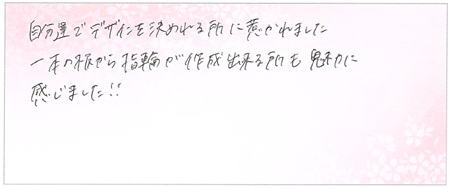 自分達でデザインを決めれる所に惹かれました
一本の板から指輪が作成出来る所も魅力に
感じました!!